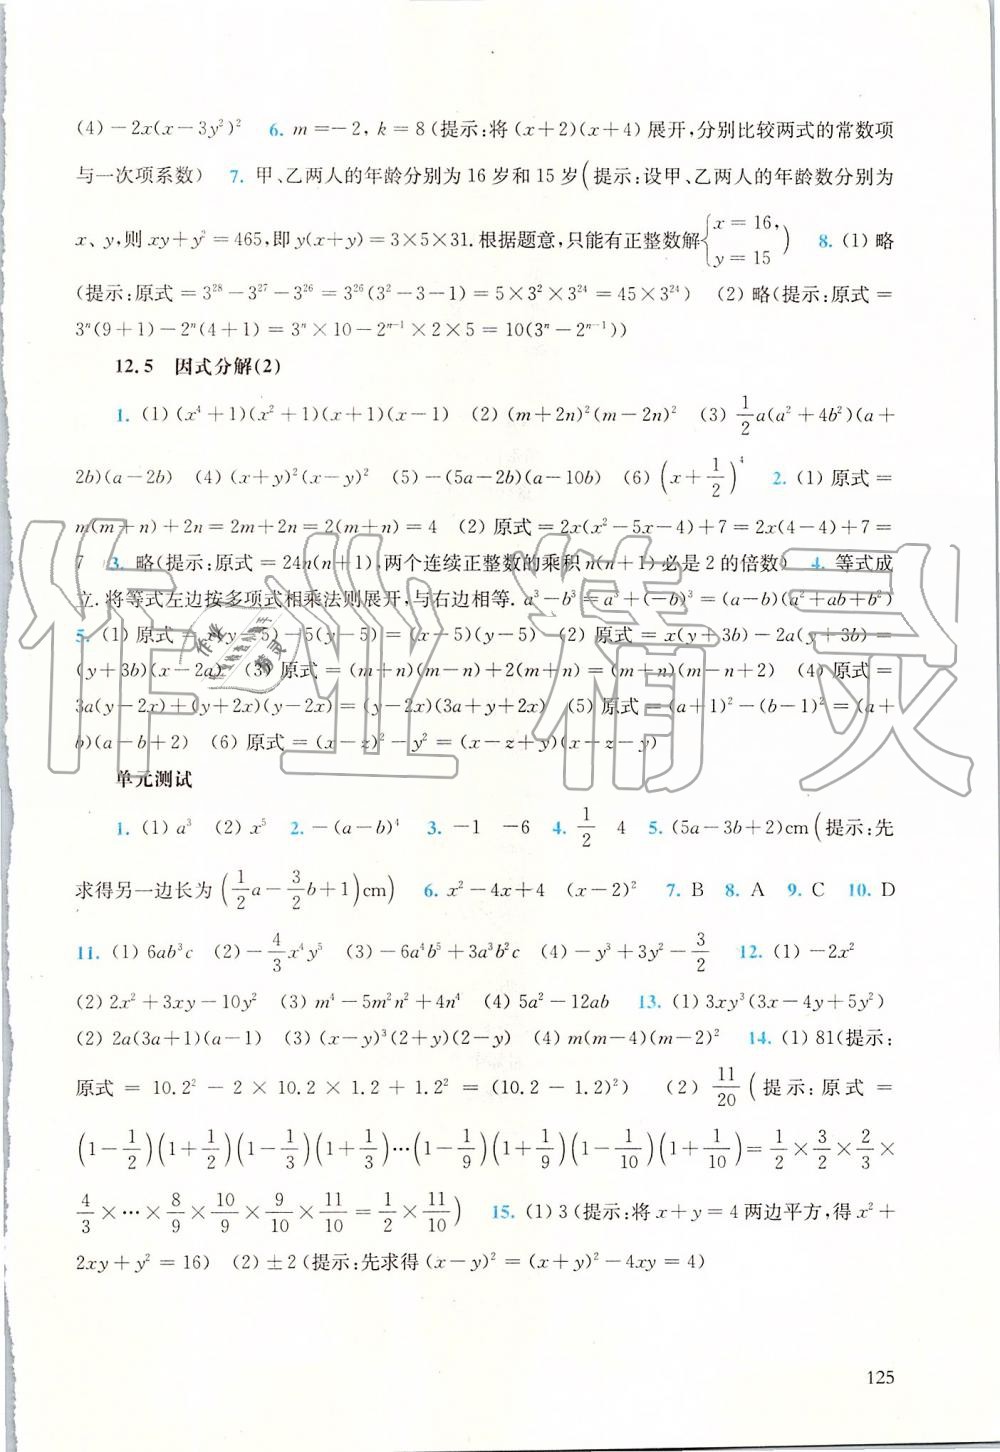 (4) －2x(x－3y²)²　6. m＝－2, k＝8(提示:将(x＋2)(x＋4)展开,分别比较两式的常数项
与一次项系数)　7. 甲、乙两人的年龄分别为16岁和15岁(提示:设甲、乙两人的年龄数分别为
x、y,则xy＋y²＝465,即y(x＋y)＝3×5×31.根据题意,只能有正整数解{x＝16, y＝15)　8. (1) 略
(提示:原式＝3²⁸－3²⁷－3²⁶＝3²⁶(3²－3－1)＝5×3²×3²⁴＝45×3²⁴)　(2) 略(提示:原式＝
3ⁿ(9＋1)－2ⁿ(4＋1)＝3ⁿ×10－2ⁿ⁻¹×2×5＝10(3ⁿ－2ⁿ⁻¹))
12.5　因式分解(2)
1. (1) (x⁴＋1)(x²＋1)(x＋1)(x－1)　(2) (m＋2n)²(m－2n)²　(3) 1/2a(a²＋4b²)(a＋
2b)(a－2b)　(4) (x＋y)²(x－y)²　(5) －(5a－2b)(a－10b)　(6) (x＋1/2)⁴　2. (1) 原式＝
m(m＋n)＋2n＝2m＋2n＝2(m＋n)＝4　(2) 原式＝2x(x²－5x－4)＋7＝2x(4－4)＋7＝
7　3. 略(提示:原式＝24n(n＋1),两个连续正整数的乘积n(n＋1)必是2的倍数)　4. 等式成
立.将等式左边按多项式相乘法则展开,与右边相等.a³－b³＝a³＋(－b)³＝(a－b)(a²＋ab＋b²)
5. (1) 原式＝x(y－5)－5(y－5)＝(x－5)(y－5)　(2) 原式＝x(y＋3b)－2a(y＋3b)＝
(y＋3b)(x－2a)　(3) 原式＝(m＋n)(m－n)＋2(m＋n)＝(m＋n)(m－n＋2)　(4) 原式＝
3a(y－2x)＋(y＋2x)(y－2x)＝(y－2x)(3a＋y＋2x)　(5) 原式＝(a＋1)²－(b－1)²＝(a＋
b)(a－b＋2)　(6) 原式＝(x－z)²－y²＝(x－z＋y)(x－z－y)
单元测试
1. (1) a³　(2) x⁵　2. －(a－b)⁴　3. －1　－6　4. 1/2　4　5. (5a－3b＋2)cm(提示:先
求得另一边长为(1/2a－3/2b＋1)cm)　6. x²－4x＋4　(x－2)²　7. B　8. A　9. C　10. D
11. (1) 6ab³c　(2) －4/3x⁴y⁵　(3) －6a⁴b⁵＋3a³b²c　(4) －y³＋3y²－3/2　12. (1) －2x²
(2) 2x²＋3xy－10y²　(3) m⁴－5m²n²＋4n⁴　(4) 5a²－12ab　13. (1) 3xy³(3x－4y＋5y²)
(2) 2a(3a＋1)(a－1)　(3) (x－y)³(2＋y)(2－y)　(4) m(m－4)(m－2)²　14. (1) 81(提示:
原式＝10.2²－2×10.2×1.2＋1.2²＝(10.2－1.2)²)　(2) 11/20(提示:原式＝
(1－1/2)(1＋1/2)(1－1/3)(1＋1/3)…(1－1/9)(1＋1/9)(1－1/10)(1＋1/10)＝1/2×3/2×2/3×
4/3×…×8/9×10/9×9/10×11/10＝1/2×11/10)　15. (1) 3(提示:将x＋y＝4两边平方,得x²＋
2xy＋y²＝16)　(2) ±2(提示:先求得(x－y)²＝(x＋y)²－4xy＝4)
125
作业精灵